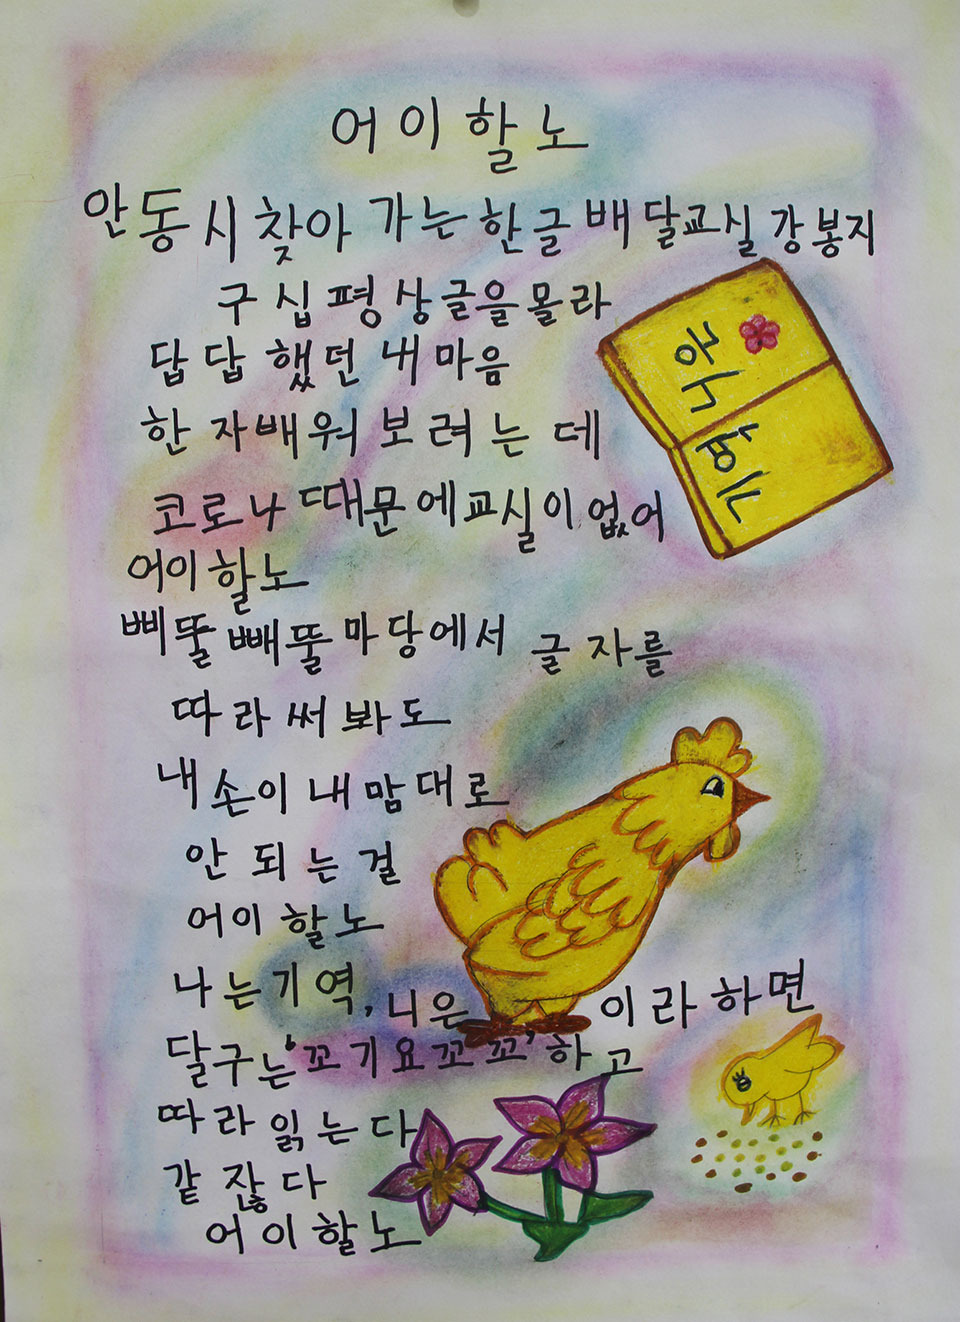 어이할노
안동시 찾아가는 한글배달교실 강봉지
구십평상글을몰라
답답했던 내마음
한자배워보려는데
코로나 때문에교실이 없어
어이할노
삐뚤빼뚤 마당에서 글자를
따라써봐도
내손이내맘대로
안되는걸
어이할노
나는기역, 니은 이라하면
달구는'꼬기요꼬꼬'하고
따라읽는다
같잖다
어이할노
공책